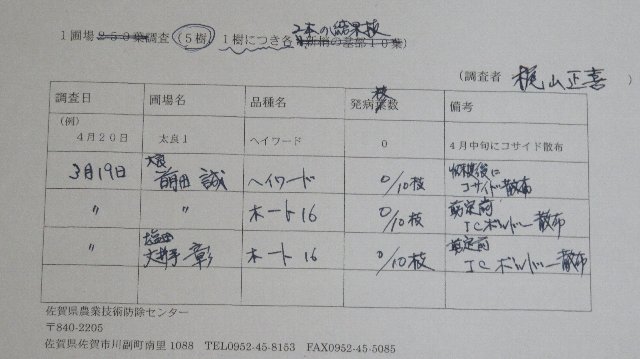 2本の結果枝
1圃場250葉調査(5樹) 1樹につき各新梢の基部10葉)
(調査者 梶山正喜)
調査日 圃場名 品種名 発病葉数 備考
枝
(例)
4月20日 太良1 ヘイワード 0 4月中旬にコサイド散布
3月19日 太良 前田 誠 ヘイワード 0/10枝 収穫後にコサイド散布
〃 〃 ホート16 0/10枝 剪定前 ICボルドー散布
〃 塩田 大井手 彰 ホート16 0/10枝 剪定前 ICボルドー散布
佐賀県農業技術防除センター
〒840-2205
佐賀県佐賀市川副町南里1088 TEL0952-45-8153 FAX0952-45-5085